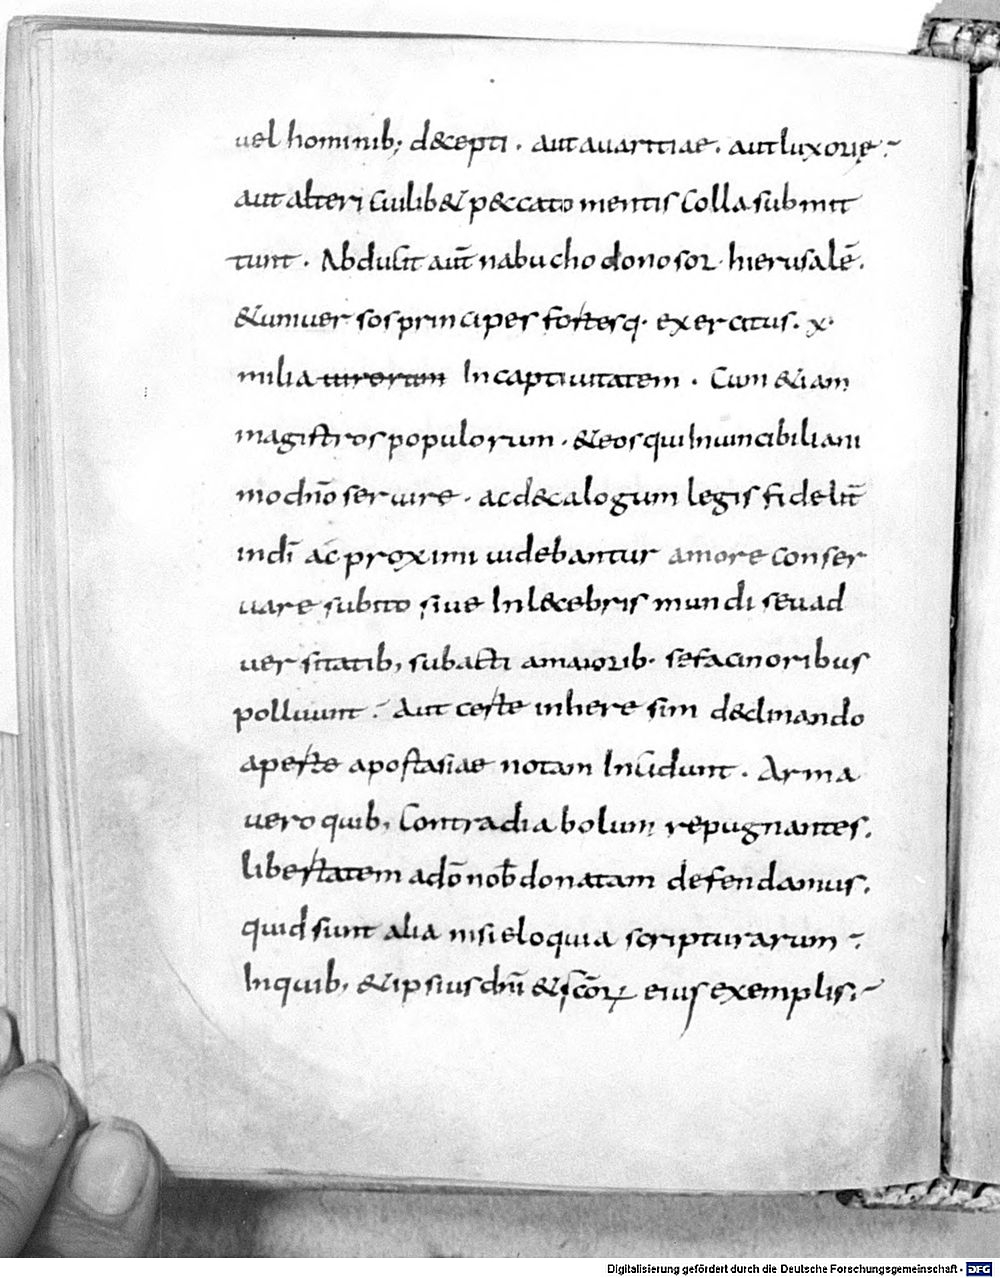 uel hominib; d&cepti . aut auaritiae . aut luxorię :
aut alteri cuilib& p&ccato mentis colla submit
tunt . Abduxit aut̄ nabuchodonosor hierusalē .
& uniuersos principes fortesq. exercitus . x .
milia uirorum In captiuitatem . Cum &iam
magistros populorum . & eos qui Inuincibili ani
mo dn̄o seruire . ac d&calogum legis fidelit̄
in dī ac proximi uidebantur amore conser
uare subito siue Inl&cebris mundi seu ad
uersitatib; subacti a maiorib . se facinoribus
polluunt : Aut certe in heresim d&clinando
aperte apostasiae notam Incidunt . Arma
uero quib; contra diabolum repugnantes .
libertatem a dō nob̄ donatam defendamus .
quid sunt alia nisi eloquia scripturarum :
In quib; & ipsius dn̄i & sc̄oꝝ eius exemplis :
Digitalisierung gefördert durch die Deutsche Forschungsgemeinschaft - DFG